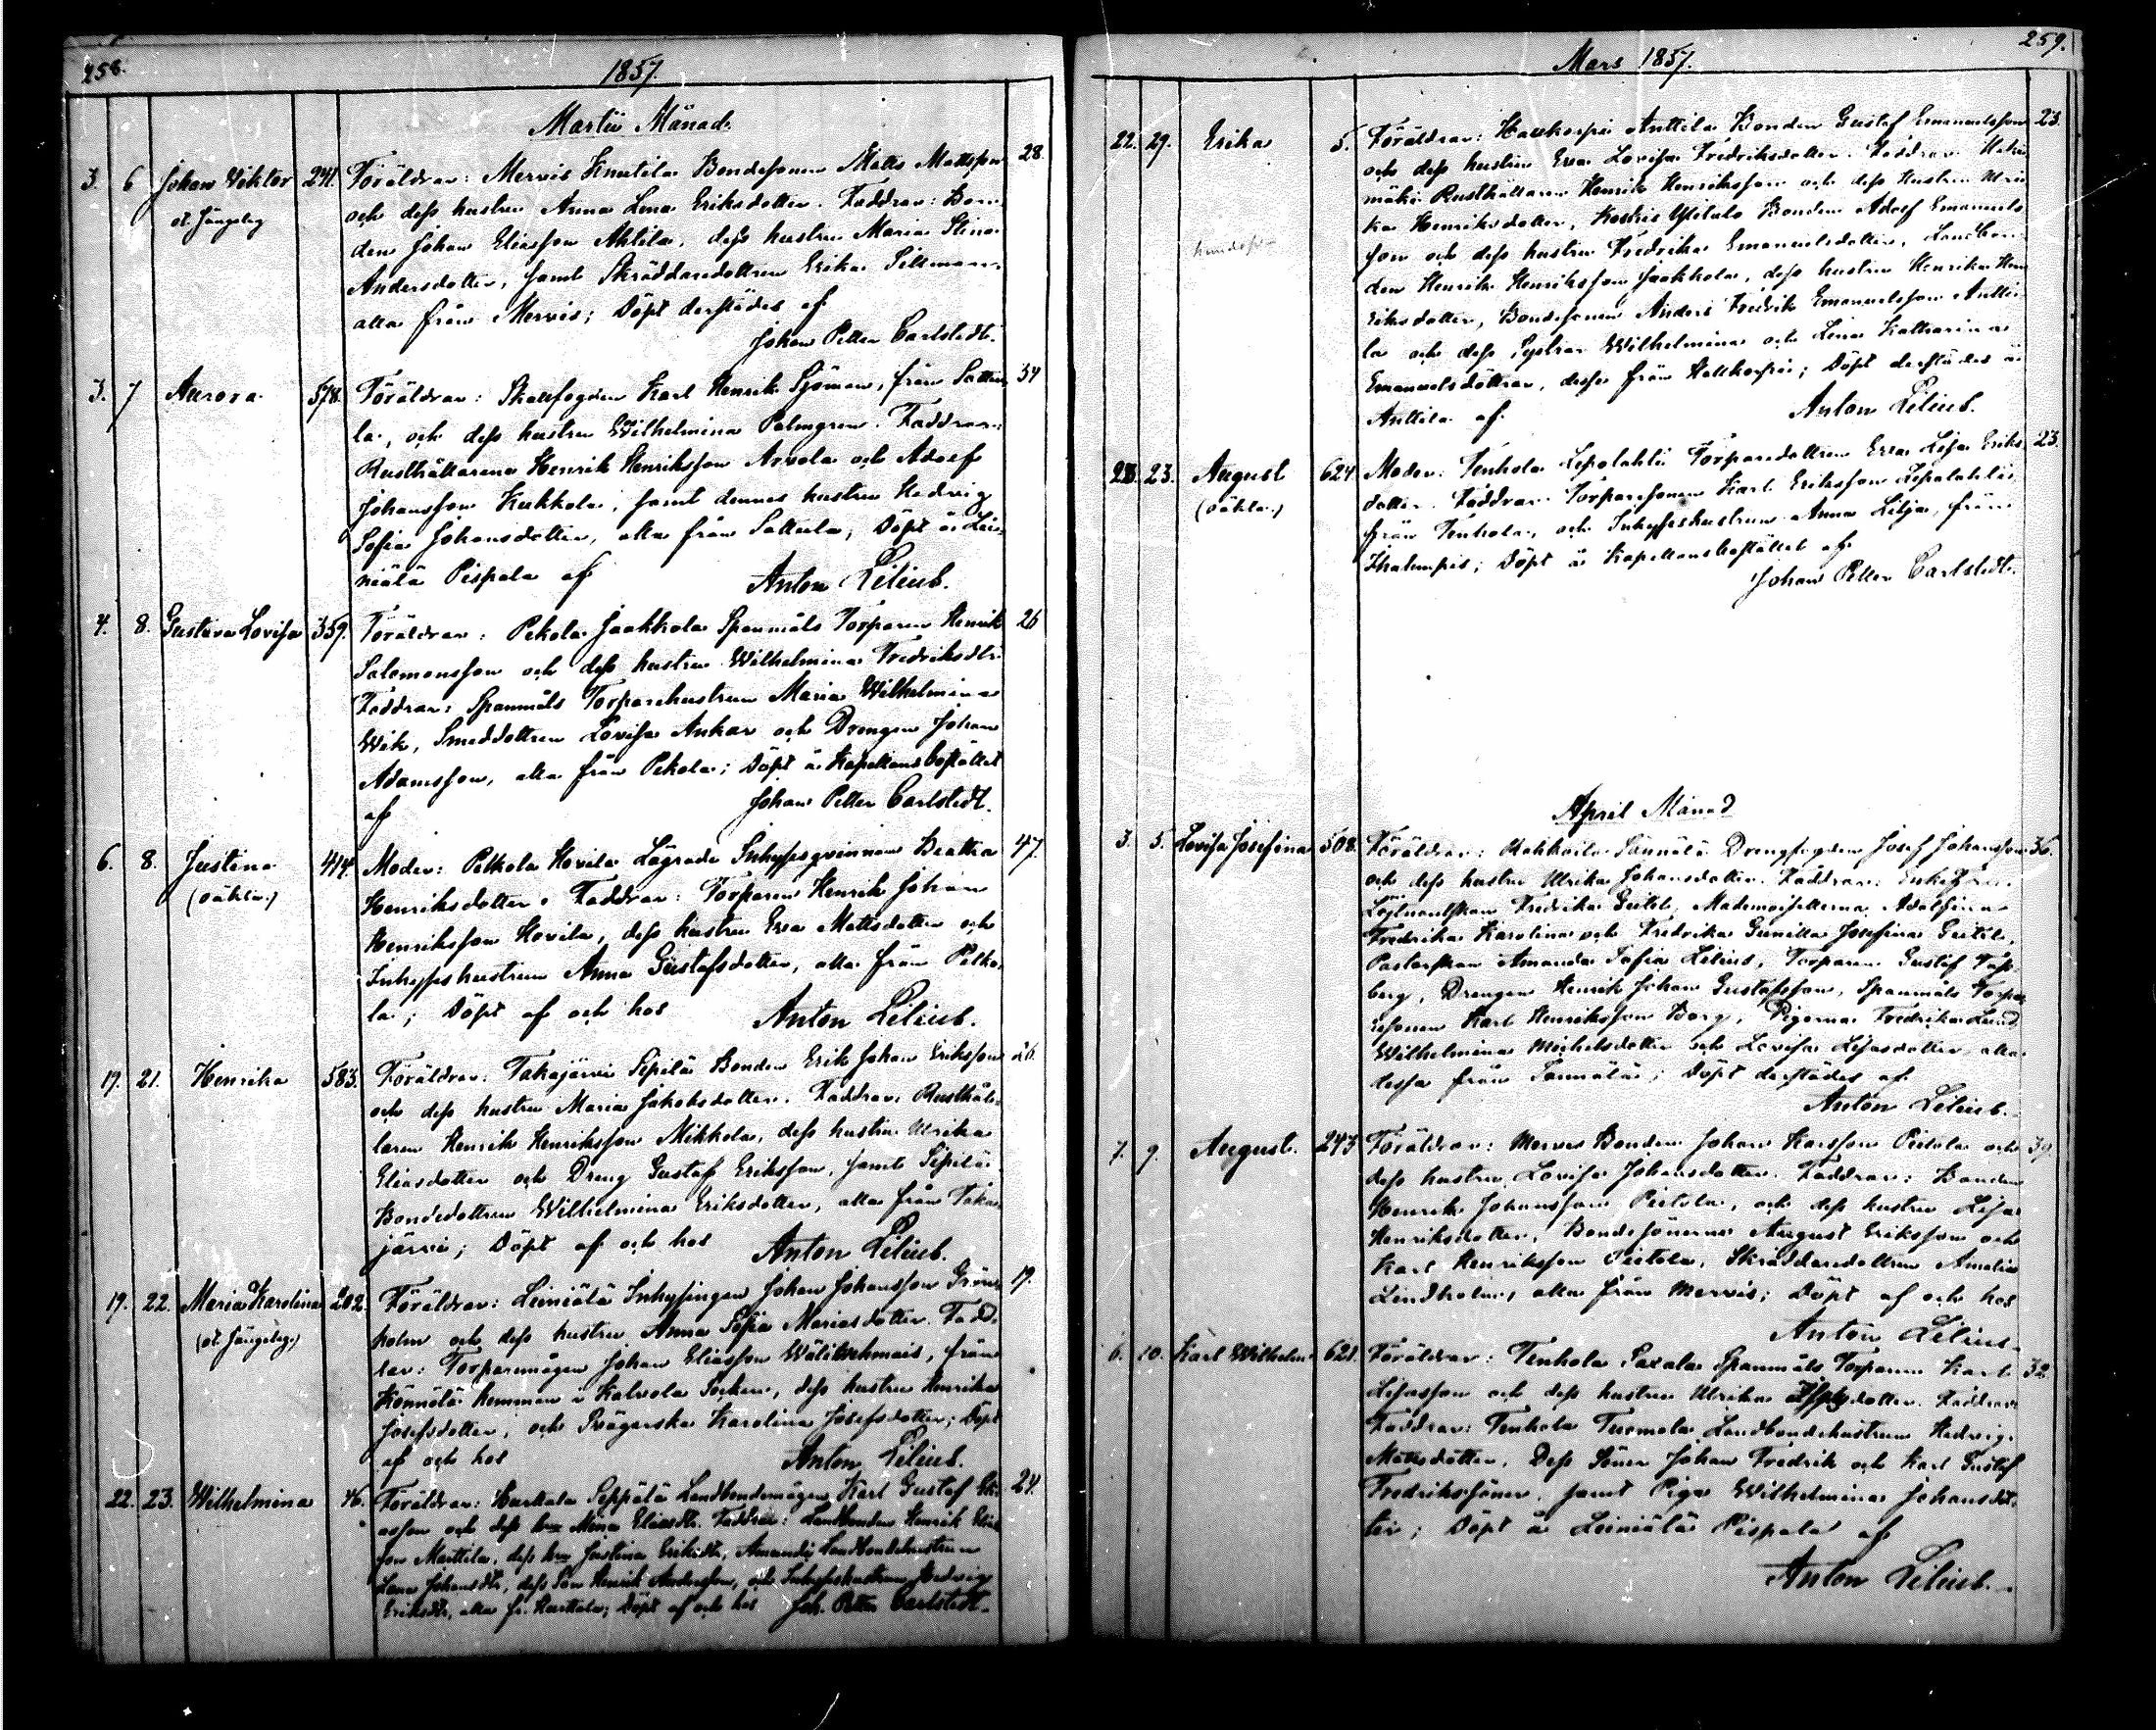 258.
1857.
Martii Månad.
3. 6 Johan Viktor 241. Föräldrar: Mervis Knutila Bondesonen Matts Mattsson 28.
och dess hustru Anna Lena Eriksdotter. Faddrar: Bon-
den Johan Eliasson Ahtila, dess hustru Maria Stina
Andersdotter, samt Skräddaredottren Erika Sillman
alla från Mervis; Döpt derstädes af
Johan Petter Carlstedt.
3. 7 Aurora 578. Föräldrar: Skallfogden Karl Henrik Sjöman, från Sattu- 34
la, och dess hustru Wilhelmina Palmgren. Faddrar:
Rusthållarena Henrik Henriksson Arvola och Adolf
Johansson Kukkola, samt dennes hustru Hedvig
Sofia Johansdotter, alla från Sattula; Döpt å Lei-
niälä Pispala af
Anton Lilius.
4. 8. Gustava Lovisa 359. Föräldrar: Pekola Jaakkola Spannmåls Torparen Henrik 26
Salomonsson och dess hustru Wilhelmina Fredriksdtr.
Faddrar: Spanmåls Torparehustrun Maria Wilhelmina
Wik, Smeddottren Lovisa Ankar och Drengen Johan
Adamsson, alla från Pekola; Döpt å Kapellansbostället
af
Johan Petter Carlstedt.
6. 8. Justina 414. Moder: Pelkola Hovila Lägrade Inhysesqvinnan Beatha 47.
(oäkta)
Henriksdotter. Faddrar: Torparen Henrik Johan
Henriksson Hovila, dess hustru Eva Mattsdotter och
Inhyseshustrun Anna Gustafsdotter, alla från Pelko-
la; Döpt af och hos
Anton Lilius.
19. 21. Henrika 583. Föräldrar: Takajärvi Sipilä Bonden Erik Johan Eriksson 26.
och dess hustru Maria Jakobsdotter. Faddrar: Rusthål-
laren Henrik Henriksson Mikkola, dess hustru Ulrika
Eliasdotter och Dreng Gustaf Eriksson, samt Sipilä
Bondedottren Wilhelmina Eriksdotter, alla från Taka-
järvi; Döpt af och hos
Anton Lilius.
19. 22. Maria Karolina 202. Föräldrar: Leiniälä Inhysingen Johan Johansson Grön- 19.
holm och dess hustru Anna Sofia Mariasdotter. Fadd-
rar: Torparemågen Johan Eliasson från
hemman i Kalvola Socken, dess hustru Henrika
Josefsdotter, och Karolina Josefsdotter; Döpt
af och hos
Anton Lilius.
22. 23. Wilhelmina 46. Föräldrar: Hurttala Seppälä Landbondemågen Karl Gustaf Eli- 24.
asson och dess hru Mina Eliasdtr. Faddrar: Landbonden Henrik Elias-
son Marttila, dess hru Justina Eriksdtr, Landbondehustrun
Lena Johansdtr, dess Son Henrik Andersson, och Inhyseshustrun Hedvig
Eriksdtr, alla fr. Hurttala; Döpt af och hos Joh. Petter Carlstedt.
259.
Mars 1857.
22. 29. Erika 5. Föräldrar: Haukorpi Anttila Bonden Gustaf Emanuelsson 23.
och dess hustru Eva Lovisa Fredriksdotter. Faddrar:
mäki Rusthållaren Henrik Henriksson och dess Hustru Ulri-
ka Henriksdotter, Ylitalo Bonden Adolf Emanuels-
son och dess hustru Fredrika Emanuelsdotter, Landbon-
den Henrik Henriksson Jaakkola, dess hustru Henrika Hen-
riksdotter, Bondesonen Anders Fredrik Emanuelsson Antti-
la och dess Systrar Wilhelmina och Lena Katharina
Emanuelsdöttrar, desse från; Döpt derstädes å
Anttila af
Anton Lilius.
23. August 624. Moder: Tenhola Lepolahti Torparedottren Eva Lisa Eriks- 23.
(oäkta)
dotter. Faddrar: Torparesonen Karl Eriksson Lepolahti
från Tenhola, och Inhyseshustrun Anna Lilja, från
Ihalempis; Döpt å Kapellansbostället af
Johan Petter Carlstedt.
April Månad
3. 5. Lovisa Josefina 508. Föräldrar: Sannälä Drengfogden Josef Johansson 36.
och dess hustru Ulrika Johansdotter. Faddrar: Enkefru
Löjtnantskan Fredrika Geitel, Mademoisellerna Adolfina
Fredrika Karolina och Fredrika Gunilla Josefina Geitel,
Pastorskan Amanda Sofia Lilius, Torparen Gustaf
berg, Drengen Henrik Johan Gustafsson, Spanmåls Torpa-
resonen Karl Henriksson Borg, Pigorna Fredrika Lund,
Wilhelmina Michelsdotter och Lovisa Lisasdotter, alla
dessa från Sannälä; Döpt derstädes af
Anton Lilius.
7. 9. August. 243 Föräldrar: Mervis Bonden Johan Karlsson Pietola och 39
dess hustru Lovisa Johansdotter. Faddrar: Bonden
Henrik Johansson Pietola, och dess hustru Lisa
Henriksdotter, Bondesönerne August Eriksson och
Karl Henriksson Pietola, Skräddaredottren Amalia
Lindholm, alla från Mervis; Döpt af och hos
Anton Lilius.
6. 10. Karl Wilhelm 621. Föräldrar: Tenhola Paxala Spanmåls Torparen Karl 32
Lisasson och dess hustru Ulrika dotter. Faddrar
Faddrar: Tenhola Tuomola Landbondehustrun Hedvig
Mattsdotter, Dess Söner Johan Fredrik och Karl Gustaf
Fredrikssöner, samt Piga Wilhelmina Johansdot-
ter; Döpt å Leiniälä Pispala af
Anton Lilius.